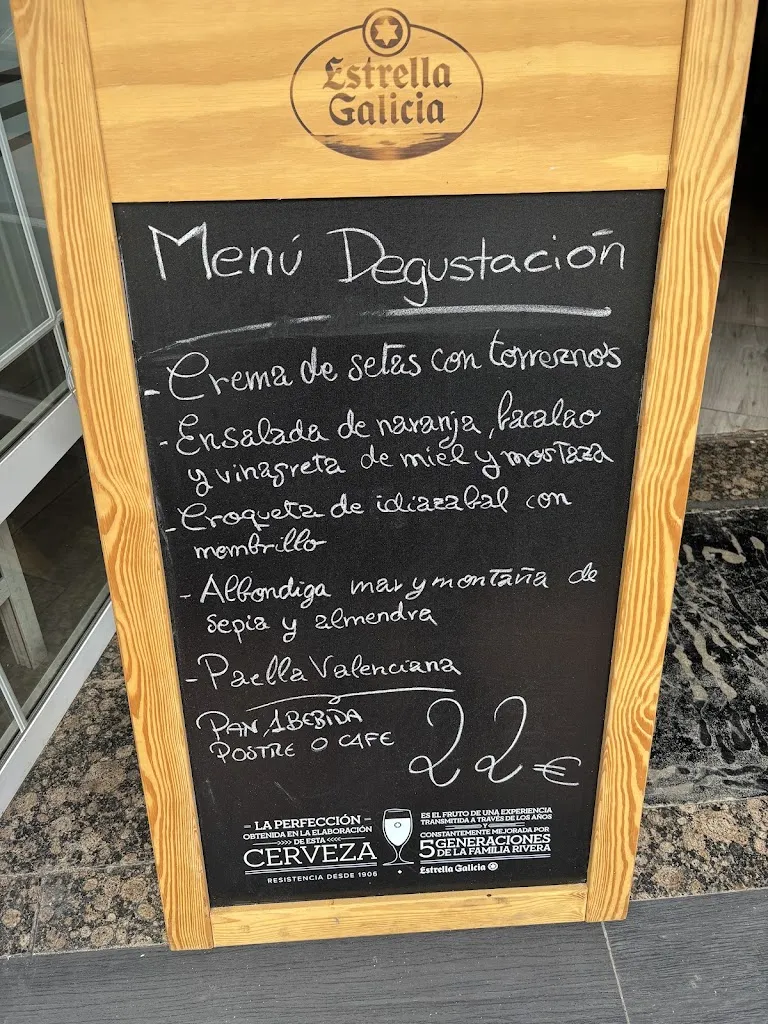 Estrella
Galicia
Menú Degustación
- Crema de setas con torreznos
- Ensalada de naranja, bacalao
y vinagreta de miel y mostaza
- Croqueta de idiazabal con
membrillo
- Albondiga mar y montaña de
sepia y almendra
- Paella Valenciana
PAN, 1 BEBIDA
POSTRE O CAFE
22€
– LA PERFECCIÓN –
OBTENIDA EN LA ELABORACIÓN
>>>> DE ESTA <<<<
CERVEZA
RESISTENCIA DESDE 1906
ES EL FRUTO DE UNA EXPERIENCIA
TRANSMITIDA A TRAVÉS DE LOS AÑOS
Y
CONSTANTEMENTE MEJORADA POR
5 GENERACIONES
DE LA FAMILIA RIVERA
Estrella Galicia